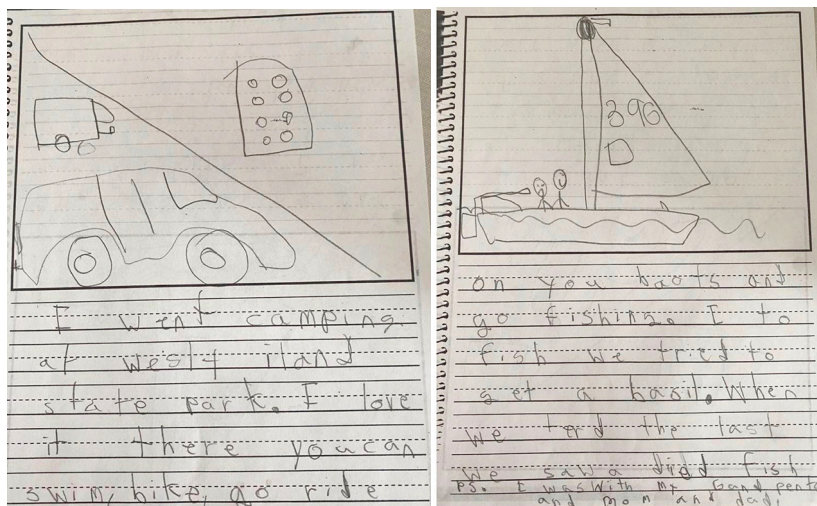 I went camping.
at wesly iland
state park. I love
it there you can
swim, bike, go ride
396
D
on you baots and
go fishing. I to
fish we tried to
get a basil. When
we terd the last
we saw a diad fish
ps. I was with my Gand pents
and mom and dad.